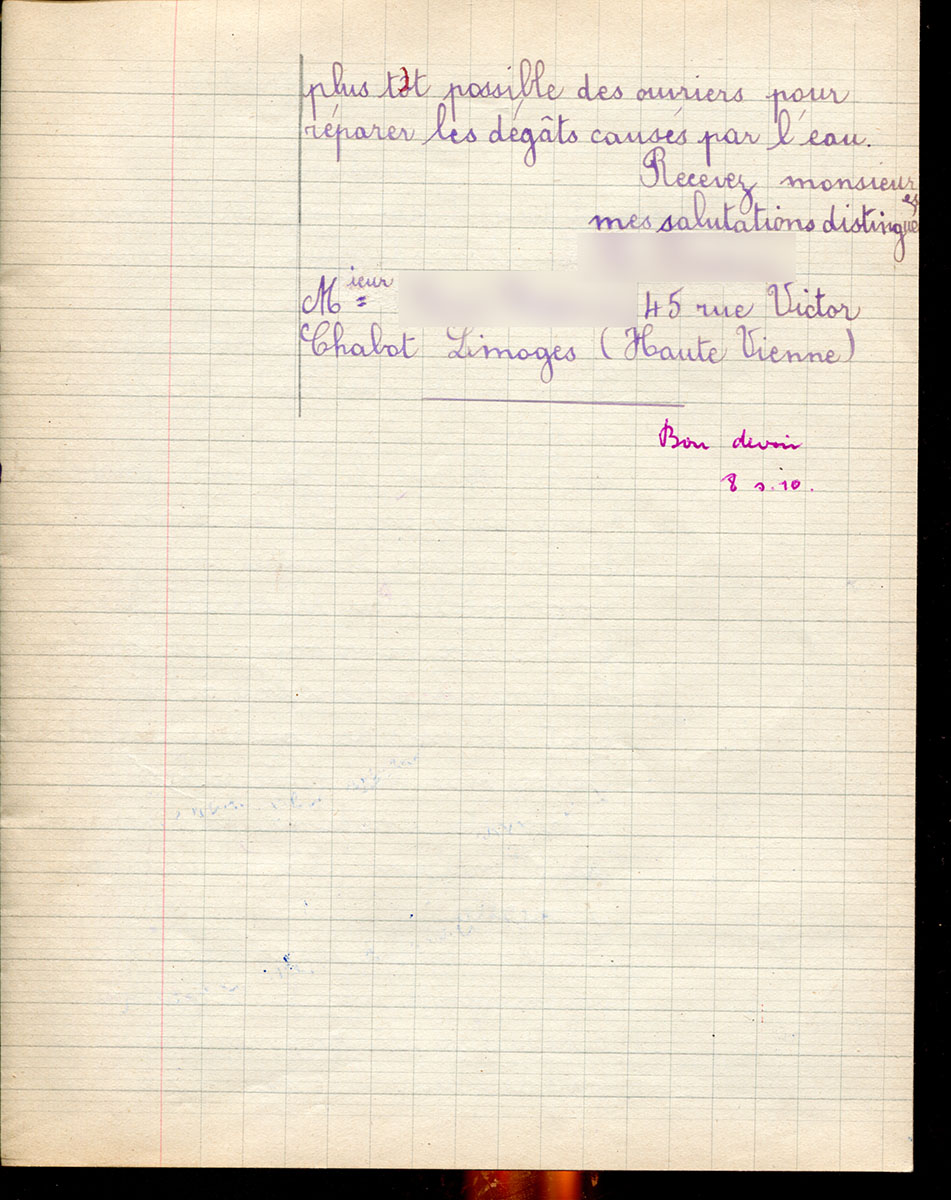 plus tôt possible des ouvriers pour
réparer les dégâts causés par l'eau.
Recevez monsieur
mes salutations distinguées
Mieur = 45 rue Victor
Chabot Limoges (Haute Vienne)
Bon devoir
8 s. 10.